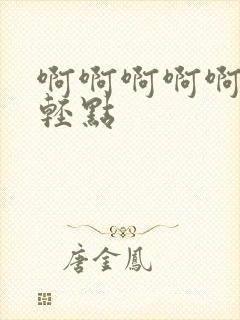 啊啊啊啊啊
輕點
唐金鳳